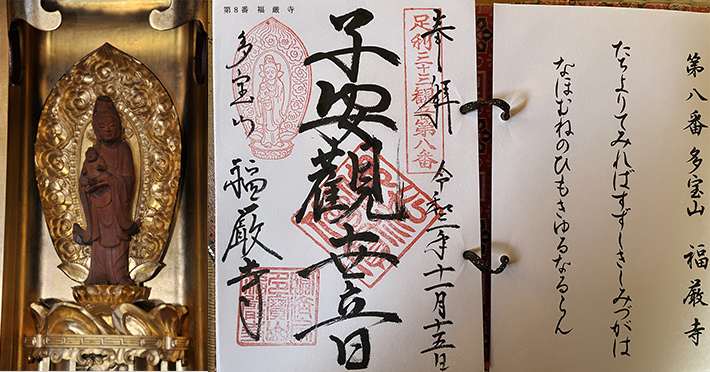 第八番 多宝山 福厳寺
たちよりてみればすずしきしみづがは
なほむねのひもきゆるなるらん
第8番 福厳寺
奉拝
足利三十三観音第八番
令和二年十一月十五日
子安觀世音
多宝山 福厳寺